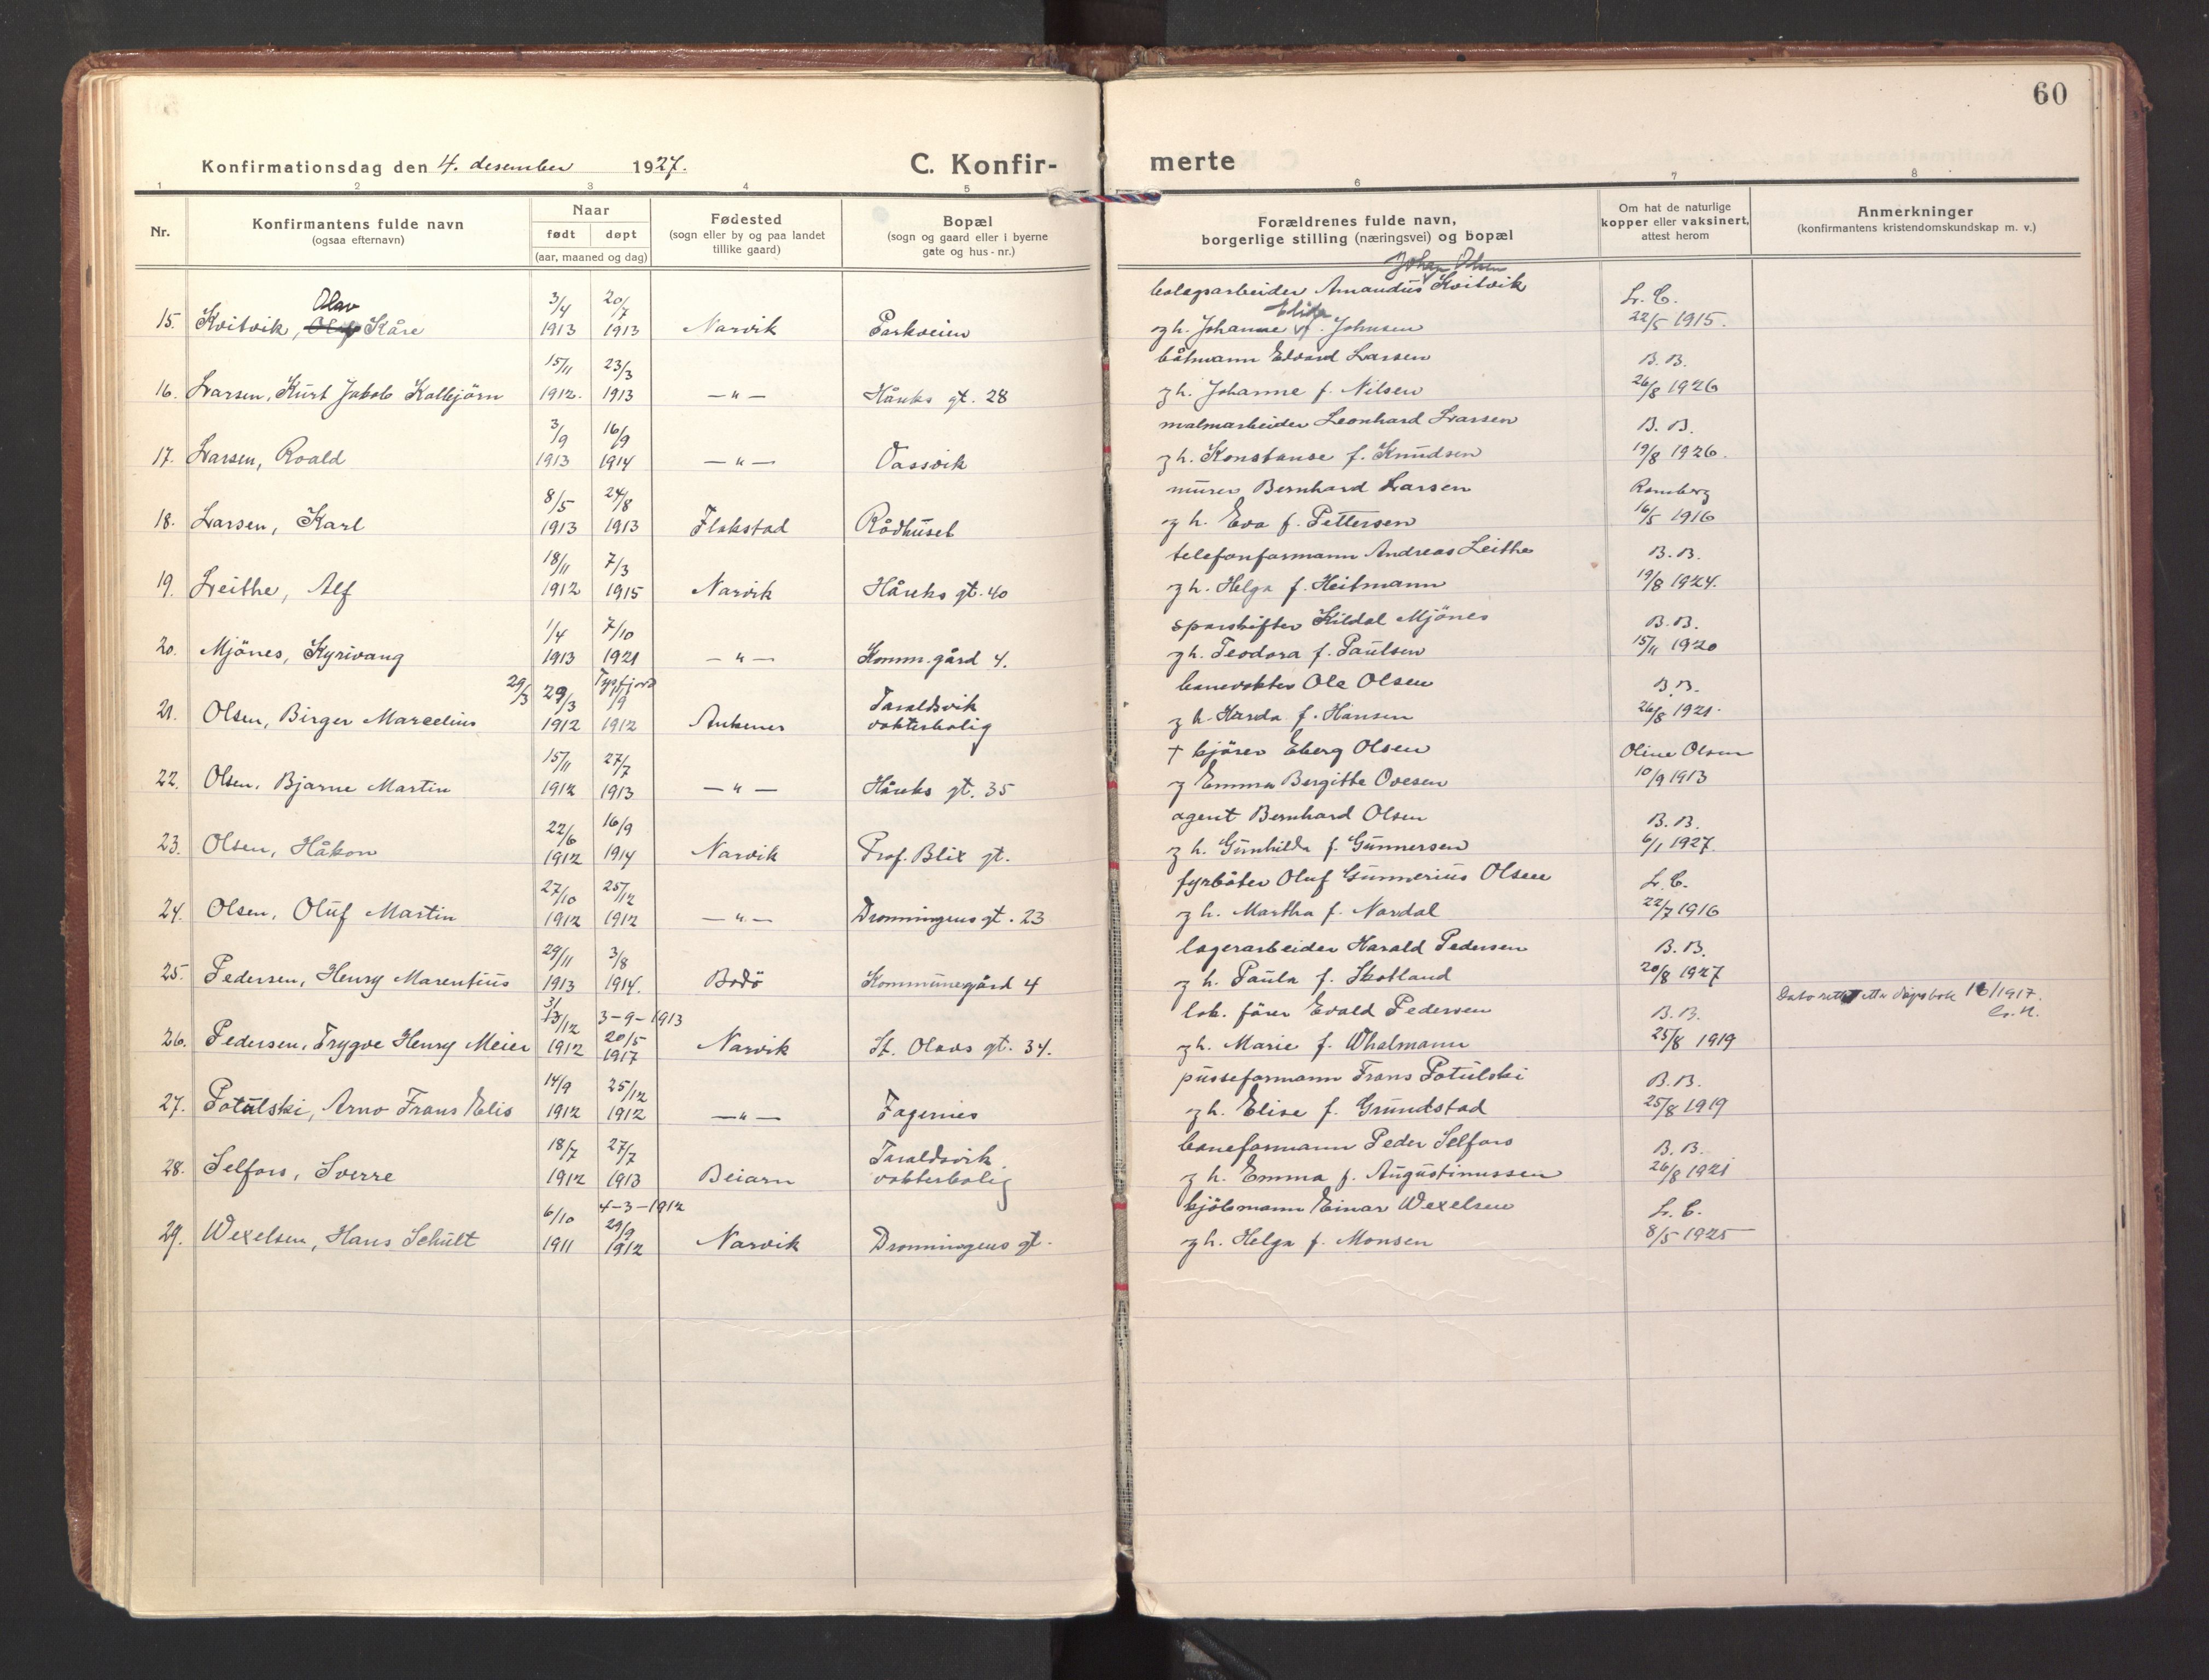 60
Konfirmationsdag den 4. desember 1927. C. Konfir- merte
1 2 3 4 5 6 7 8
Nr. Konfirmantens fulde navn (ogsaa efternavn) Naar født døpt (aar, maaned og dag) Fødested (sogn eller by og paa landet tillike gaard) Bopæl (sogn og gaard eller i byerne gate og hus-nr.) Forældrenes fulde navn, borgerlige stilling (næringsvei) og bopæl Om hat de naturlige kopper eller vaksinert, attest herom Anmerkninger (konfirmantens kristendomskundskap m. v.)
Johan
Olav 3/4 20/7 bolagsarbeider Amandus Kvitvik L. C.
15. Kvitvik, Kåre 1913 1913 Narvik Parkveien g h. Johanne f. Johnsen 22/5 1915.
15/11 23/3 båtmann Edvard Larsen B. B.
16. Larsen, Kurt Jakob Kolbjörn 1912. 1913 — " — Håreks gt. 28 g h. Johanne f. Nilsen 26/8 1926
3/9 16/9 malmarbeider Leonhard Larsen B. B.
17. Larsen, Roald 1913 1914 — " — Vassvik g h. Konstanse f. Knudsen 19/8 1926.
8/5 24/8 murer Bernhard Larsen Ramberg
18. Larsen, Karl 1913 1913 Flakstad Rådhuset g h. Eva f. Pettersen 16/5 1916
18/11 7/3 telefonformann Andreas Leithe B. B.
19. Leithe, Alf 1912 1915 Narvik Håreks gt. 40 g h. Helga f. Heitmann 19/8 1924.
1/4 7/10 sporskifter Kildal Mjönes B. B.
20. Mjönes, Kyrivang 1913 1921 — " — Komm. gård 4. g h. Teodora f. Paulsen 15/11 1920
29/3 29/3 Tysfjord /9 Taraldsvik banevokter Ole Olsen B. B.
21. Olsen, Birger Marcelius 1912 1912 Ankenes vokterbolig g h. Harda f. Hansen 26/8 1921.
15/11 27/7 † kjörer Eberg Olsen Oline Olsen
22. Olsen, Bjarne Martin 1912 1913 — " — Håreks gt. 35 g Emma Bergitte Ovesen 10/9 1913
22/6 16/9 agent Bernhard Olsen B. B.
23. Olsen, Håkon 1912 1914 Narvik Prof. Blix gt. g h. Gunhilda f. Gunnersen 6/1 1927.
27/10 25/12 fyrböter Oluf Gunnerius Olsen L. C.
24. Olsen, Oluf Martin 1912 1912 — " — Dronningens gt. 23 g h. Martha f. Nordal 22/7 1916
29/11 3/8 lagerarbeider Harald Pedersen B. B.
25. Pedersen, Henry Marentius 1913 1914. Bodö Kommunegård 4 g h. Paula f. Skotland 20/8 1927
3/ 13/12 3-9-1913 20/5 lok. förer Evald Pedersen B. B. Dato rettet etter dåpsbok 16/1917.
26. Pedersen, Trygve Henry Meier 1912 1917 Narvik St. Olavs gt. 34. g h. Marie f. Whalmann 25/8 1919
14/9 25/12 pusseformann Frans Potulski B. B.
27. Potulski, Arno Frans Elis 1912 1912 — " — Fagernes g h. Elise f. Grundstad 25/8 1919
18/7 27/7 Taraldsvik baneformann Peder Selfors B. B.
28. Selfors, Sverre 1912 1913 Beiarn vokterbolig g h. Emma f. Augustinussen 26/8 1921
6/10 4-3-1912 29/9 kjöbmann Einar Wexelsen L. C.
29. Wexelsen, Hans Schult 1911 1912 Narvik Dronningens gt. g h. Helga f. Monsen 8/5 1925